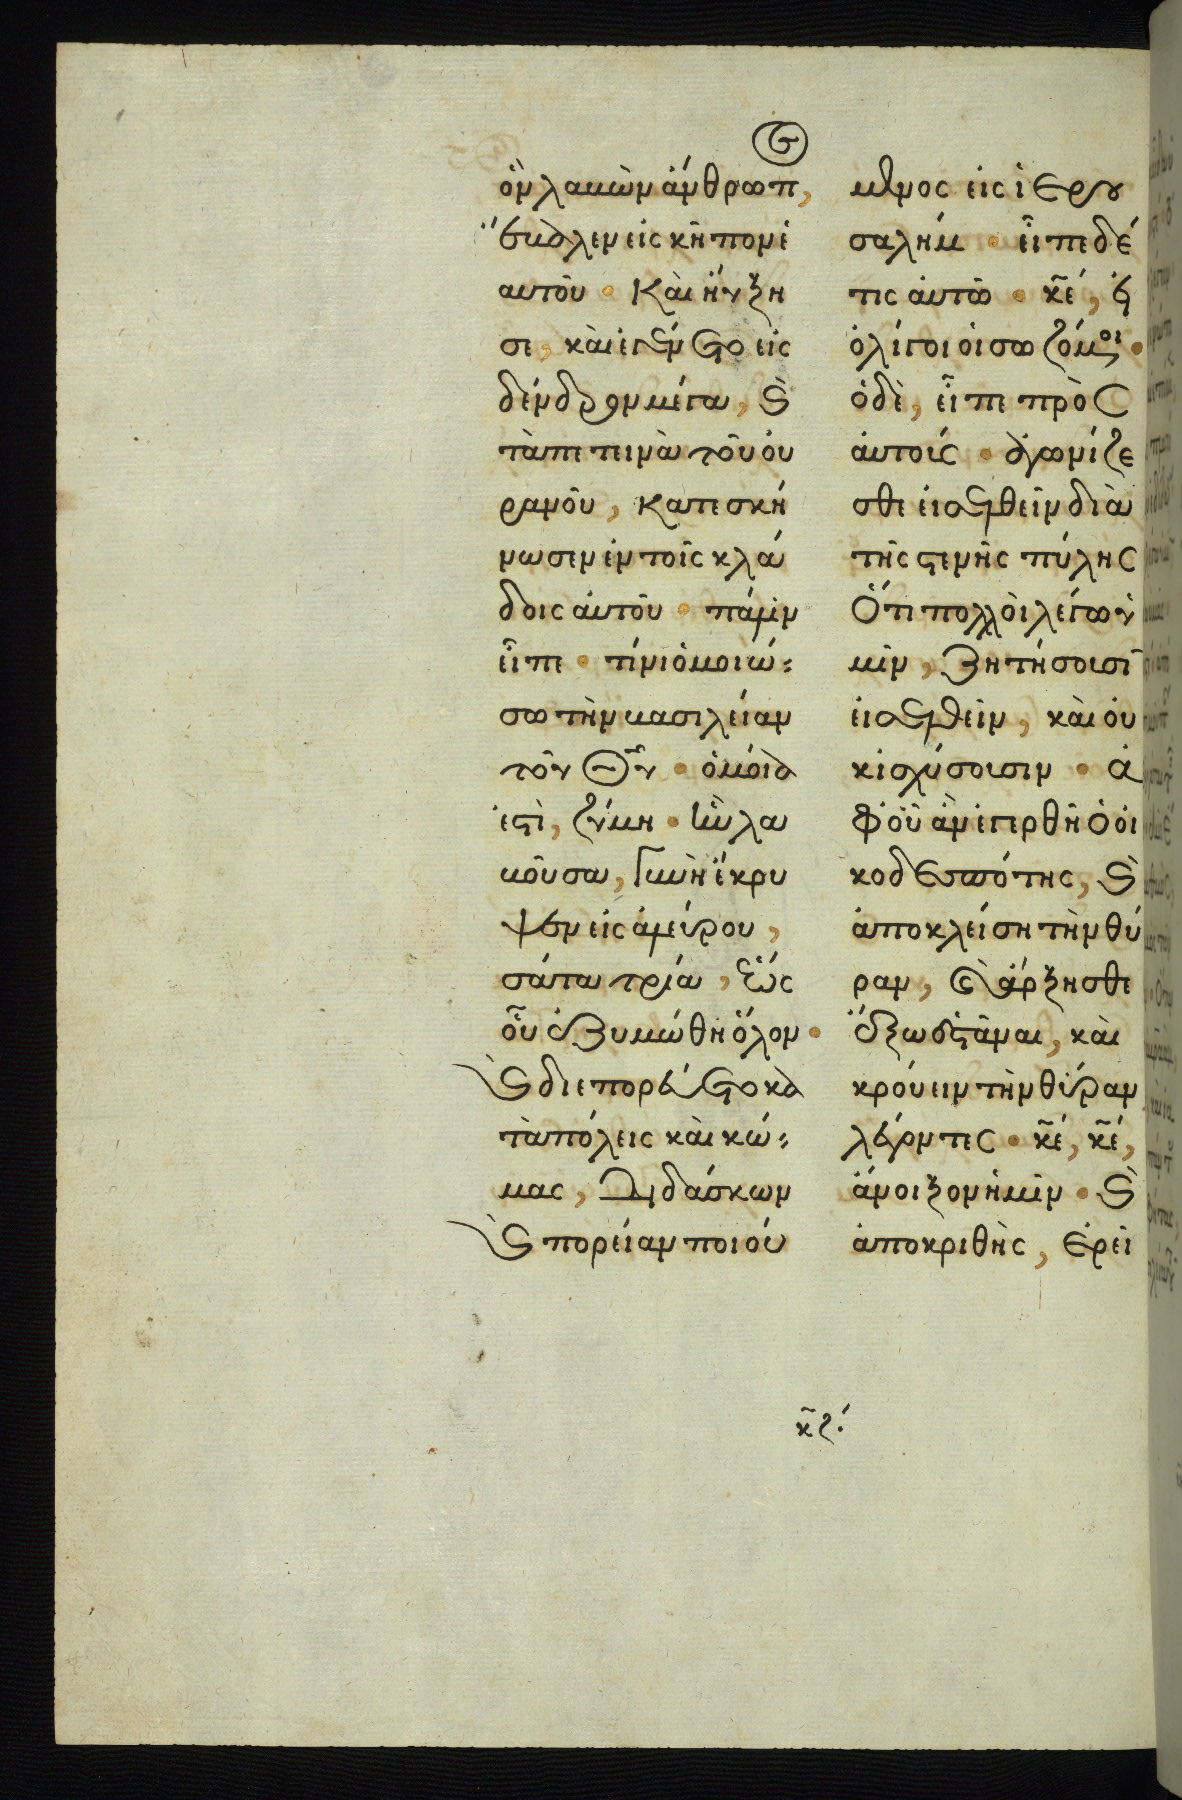 ὃν λαβὼν ἄνθρωπ,
ἔβαλεν εἰς κῆπον ἑ
αυτοῦ · Καὶ ηὔξη
σε, καὶ ἐγένετο εἰς
δένδρον μέγα, καὶ
τὰ πετεινὰ τοῦ οὐ
ρανοῦ, κατεσκή
νωσεν ἐν τοῖς κλά
δοις αὐτοῦ · πάλιν
εἶπε · τίνι ὁμοιώ-
σω τὴν βασιλείαν
τοῦ Θῦ · ὁμοία
ἐστὶ, ζύμη · ἣν λα
βοῦσα, γυνὴ ἔκρυ
ψεν εἰς ἀλεύρου,
σάτα τρία, ἕως
οὗ ἐζυμώθη ὅλον ·
καὶ διεπορεύετο κα
τὰ πόλεις καὶ κώ-
μας, διδάσκων
καὶ πορείαν ποιού
μενος εἰς ἱερου
σαλήμ · εἶπε δέ
τις αὐτῶ · κε, εἰ
ὀλίγοι οἱ σωζόμενοι ·
ὁ δὲ, εἶπε πρὸς
αὐτούς · ἀγωνίζε
σθε εἰσελθεῖν διὰ
τῆς στενῆς πύλης
Ὅτι πολλοὶ λέγω ὑ
μῖν, Ζητήσουσιν
εἰσελθεῖν, καὶ οὐ
κ ἰσχύσουσιν · ἀ
φ' οὗ ἂν ἐγερθῆ ὁ οἰ
κοδεσπότης, καὶ
ἀποκλείση τὴν θύ
ραν, καὶ ἄρξησθε
ἔξω ἑστάναι, καὶ
κρούειν τὴν θύραν
λέγοντες · κε, κε,
ἄνοιξον ἡμῖν · καὶ
ἀποκριθεὶς, ἐρεῖ
κς